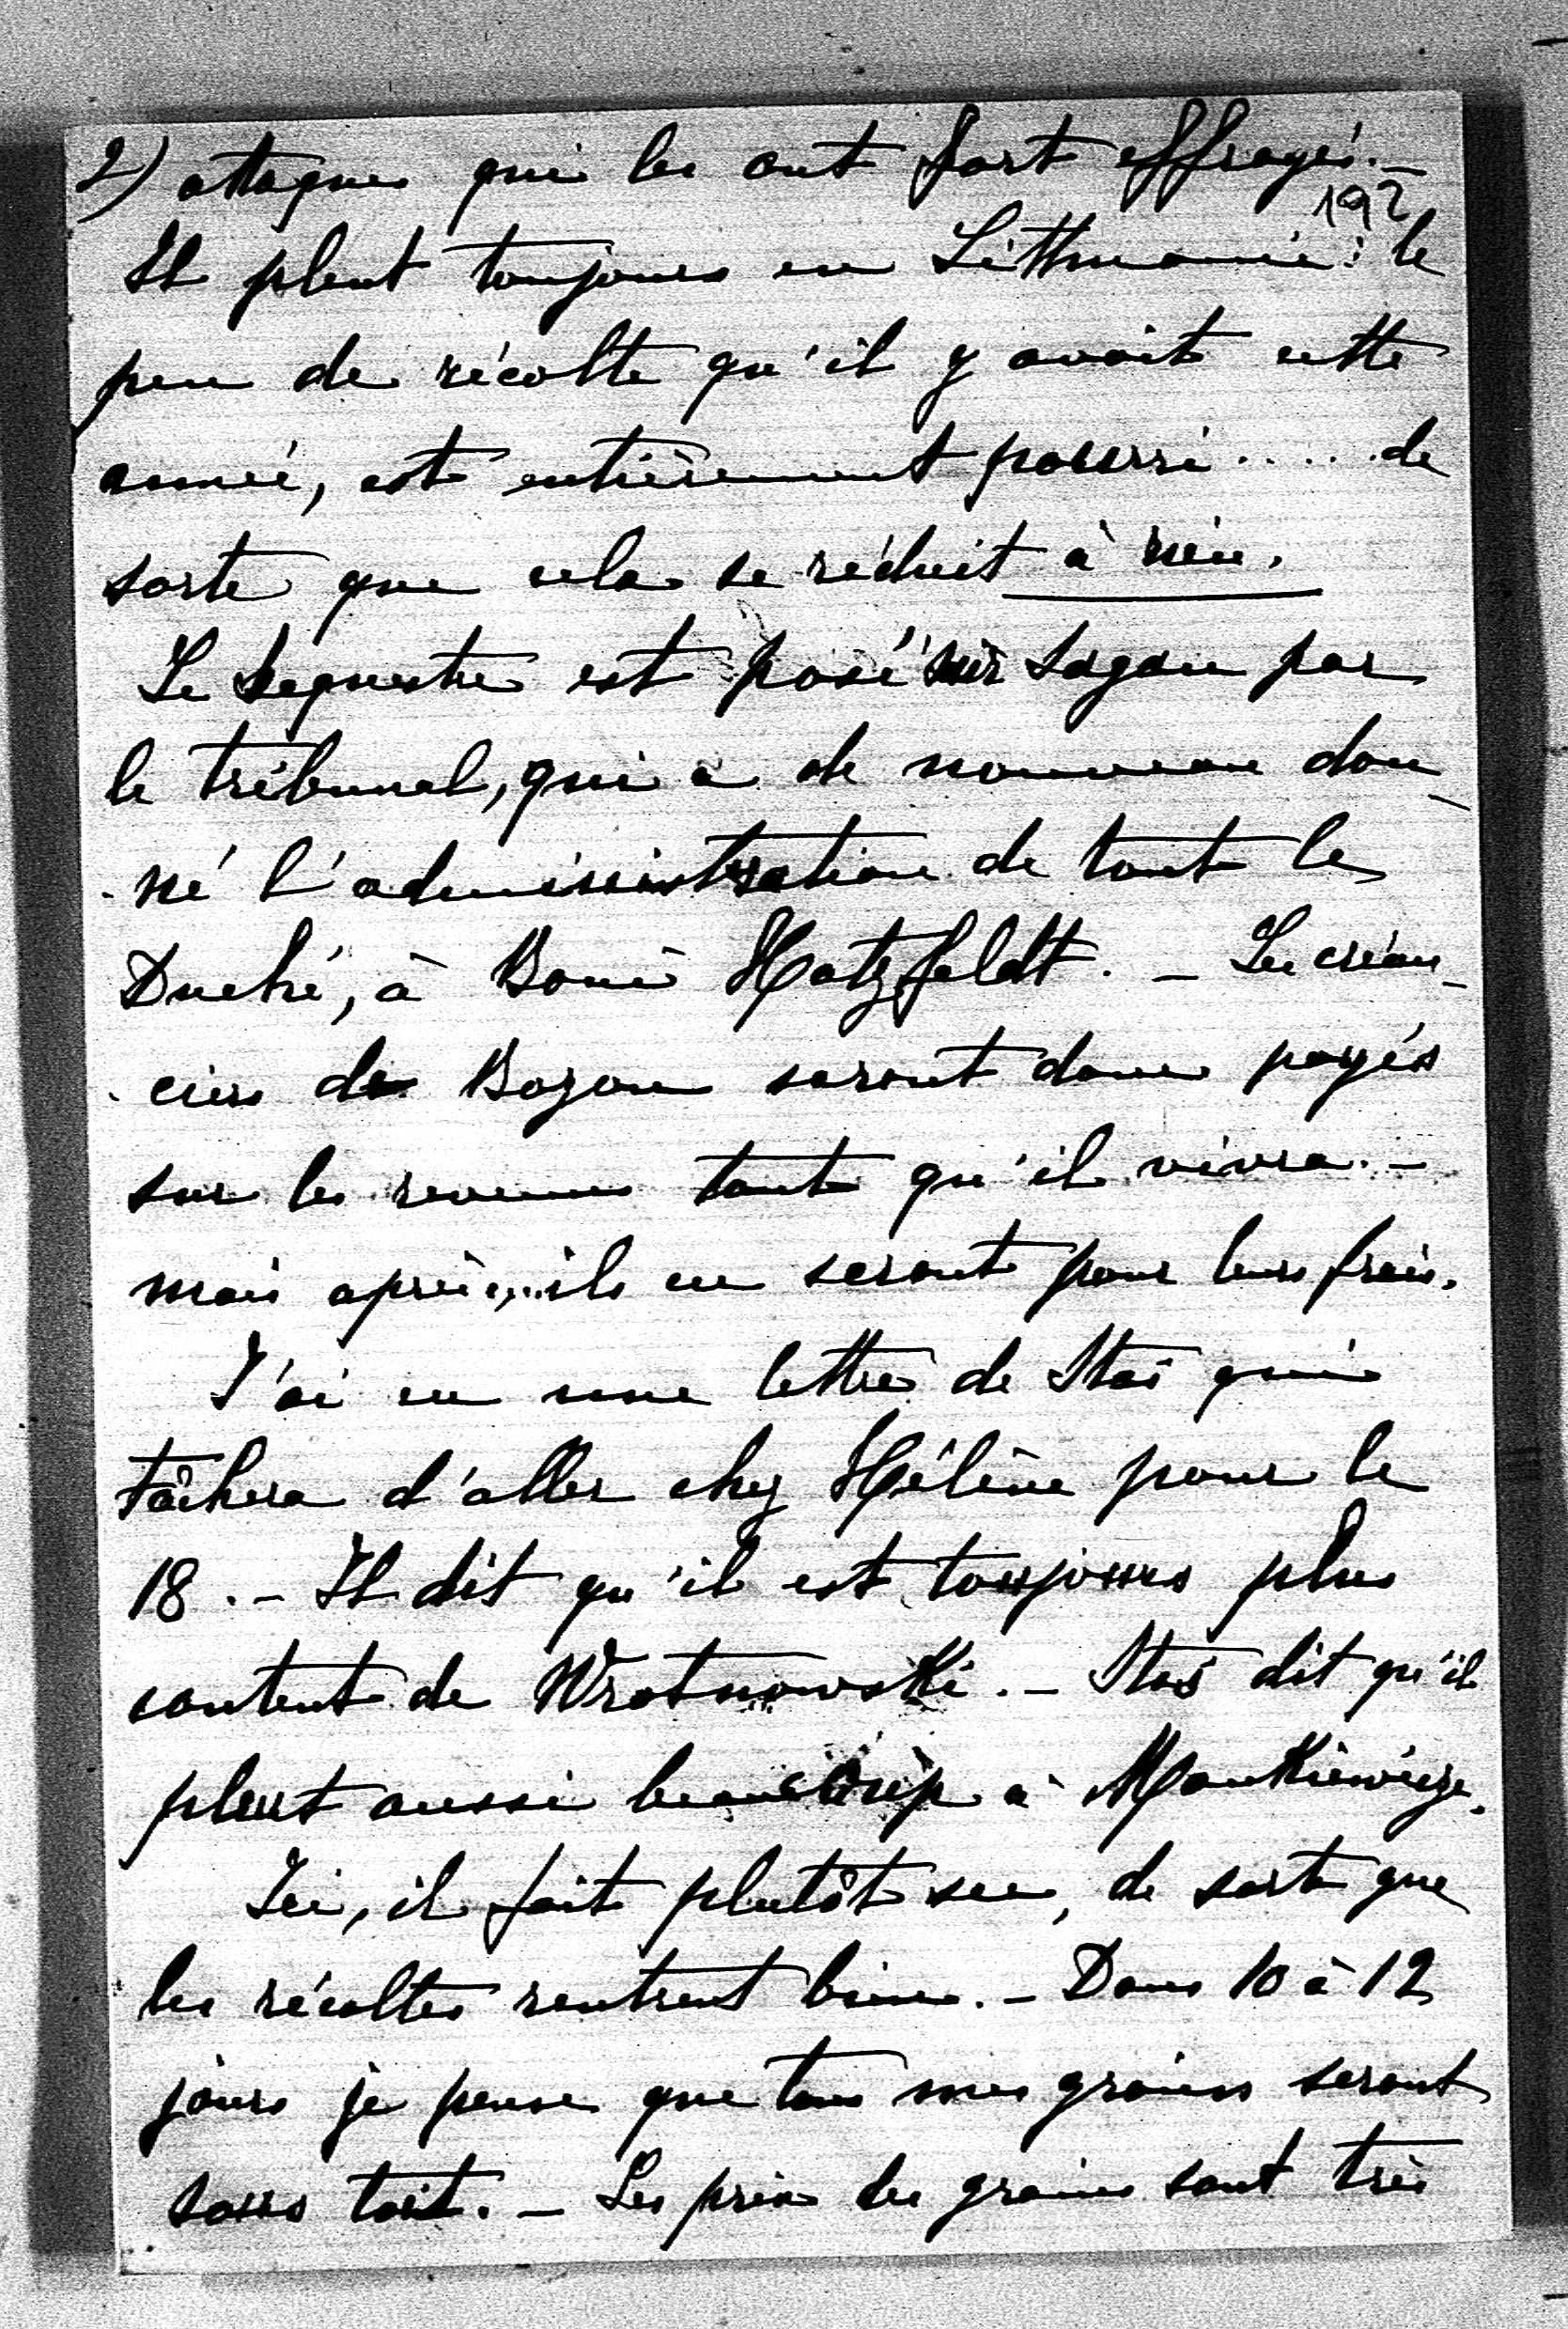 2) attaques qui les ont fort effrayés. –
192
Il pleut toujours en Litthuanie : le
peu de récolte qu'il y avait cette
année, est entièrement pourri ..... de
sorte que cela se réduit à rien.
Le sequestre est posé sur Sagan par
le tribunal, qui a de nouveau don-
-né l'administration de tout le
Duché, à Boni Hatzfeldt. – Les créan-
-ciers de Bozon seront donc payés
sur les revenus tant qu'il vivra. –
mais après,.. ils en seront pour leurs frais.
J'ai eu une lettre de Stas qui
tâchera d'aller chez Hélène pour le
18. – Il dit qu'il est toujours plus
content de Wrotnowski. – Stas dit qu'il
pleut aussi beaucoup à Mankiewicze.
Ici, il fait plutôt sec, de sorte que
les récoltes rentrent bien. – Dans 10 à 12
jours je pense que tous mes grains seront
sous toit. – Les prix des grains sont très